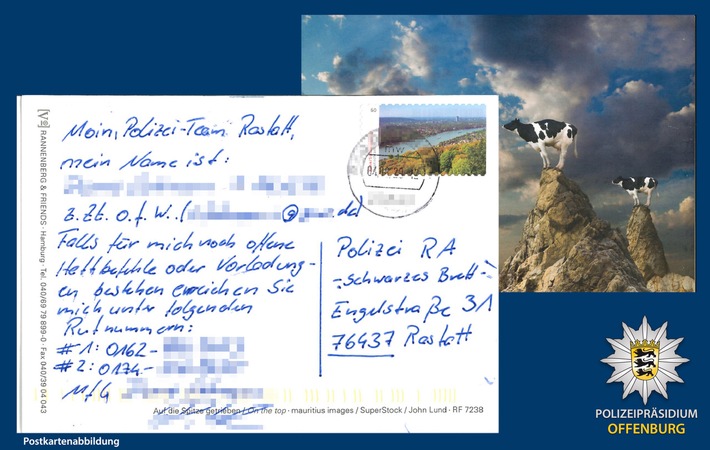 Moin, Polizei-Team Rastatt,
mein Name ist:
z.Zt. o.f.W., ( @ .de)
Falls für mich noch offene
Haftbefehle oder Vorladung-
en bestehen erreichen Sie
mich unter folgenden
Rufnummern:
#1: 0162-
#2: 0174-
MfG
Polizei RA
-Schwarzes Brett-
Engelstraße 31
76437 Rastatt
[V✉] RANNENBERG & FRIENDS · Hamburg · Tel. 040/69 79 899-0 · Fax 040/39 04 043
Auf die Spitze getrieben / On the top · mauritius images / SuperStock / John Lund · RF 7238
POLIZEIPRÄSIDIUM
OFFENBURG
Postkartenabbildung